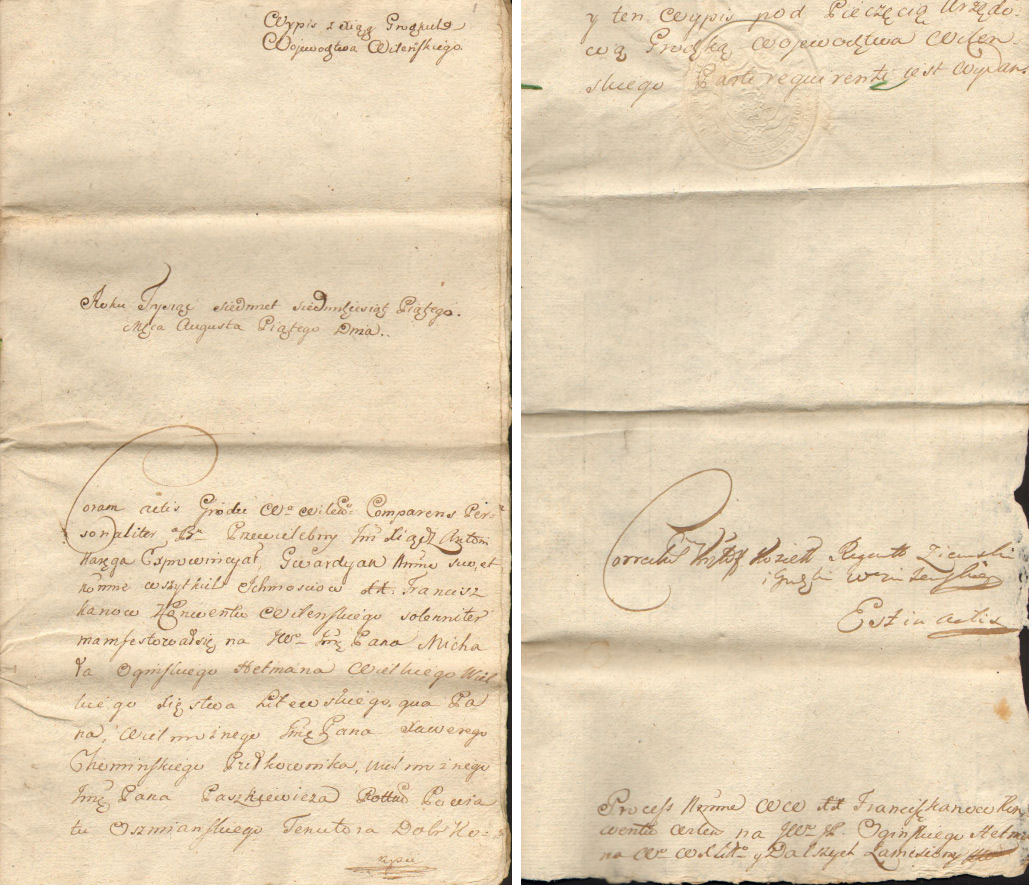 Wypis z Xiąg Grodzkich
Wojewodztwa Wileńskiego
Roku Tysiąc siedmset siedmdziesiąt Piątego.
Mṣca Augusta Piątego Dnia..
Coram actis Grodu Wo Wileo Comparens Per-
sonaliter Przewielebny Jm Xiądz Antoni
Exprowincyał, Gwardyan Imṇe swo, et
Imṇe wszytkich Ichmosciow XX. Francisz
kanow Konwentu Wilenskiego solenniter
manifestował się na JWo Jmę Pana Micha
ła Oginskiego Hetmana Wielkiego Wiel
kiego Xięstwa Litewskiego, qua Pa
na, Wielmożnego Jmę Pana Xawerego
Chominskiego Pułkownika, Wielmożnego
Jmę Pana Paszkiewicza Powia
tu Oszmianskiego Tenutora Dobr Ko-
y ten Wypis pod Pieczęcią Urzędo-
wą Grodzką Wojewodztwa Wilen-
skiego Parti requirenti jest wydan.
Correxit Koziełł Regent Ziemski
i Grodzki
Est in actis
Process Imṇe WW XX Franciszkanow Kon
wentu Wilen na JWo Jł. Oginskiego Hetma
na Wo y Dalszych